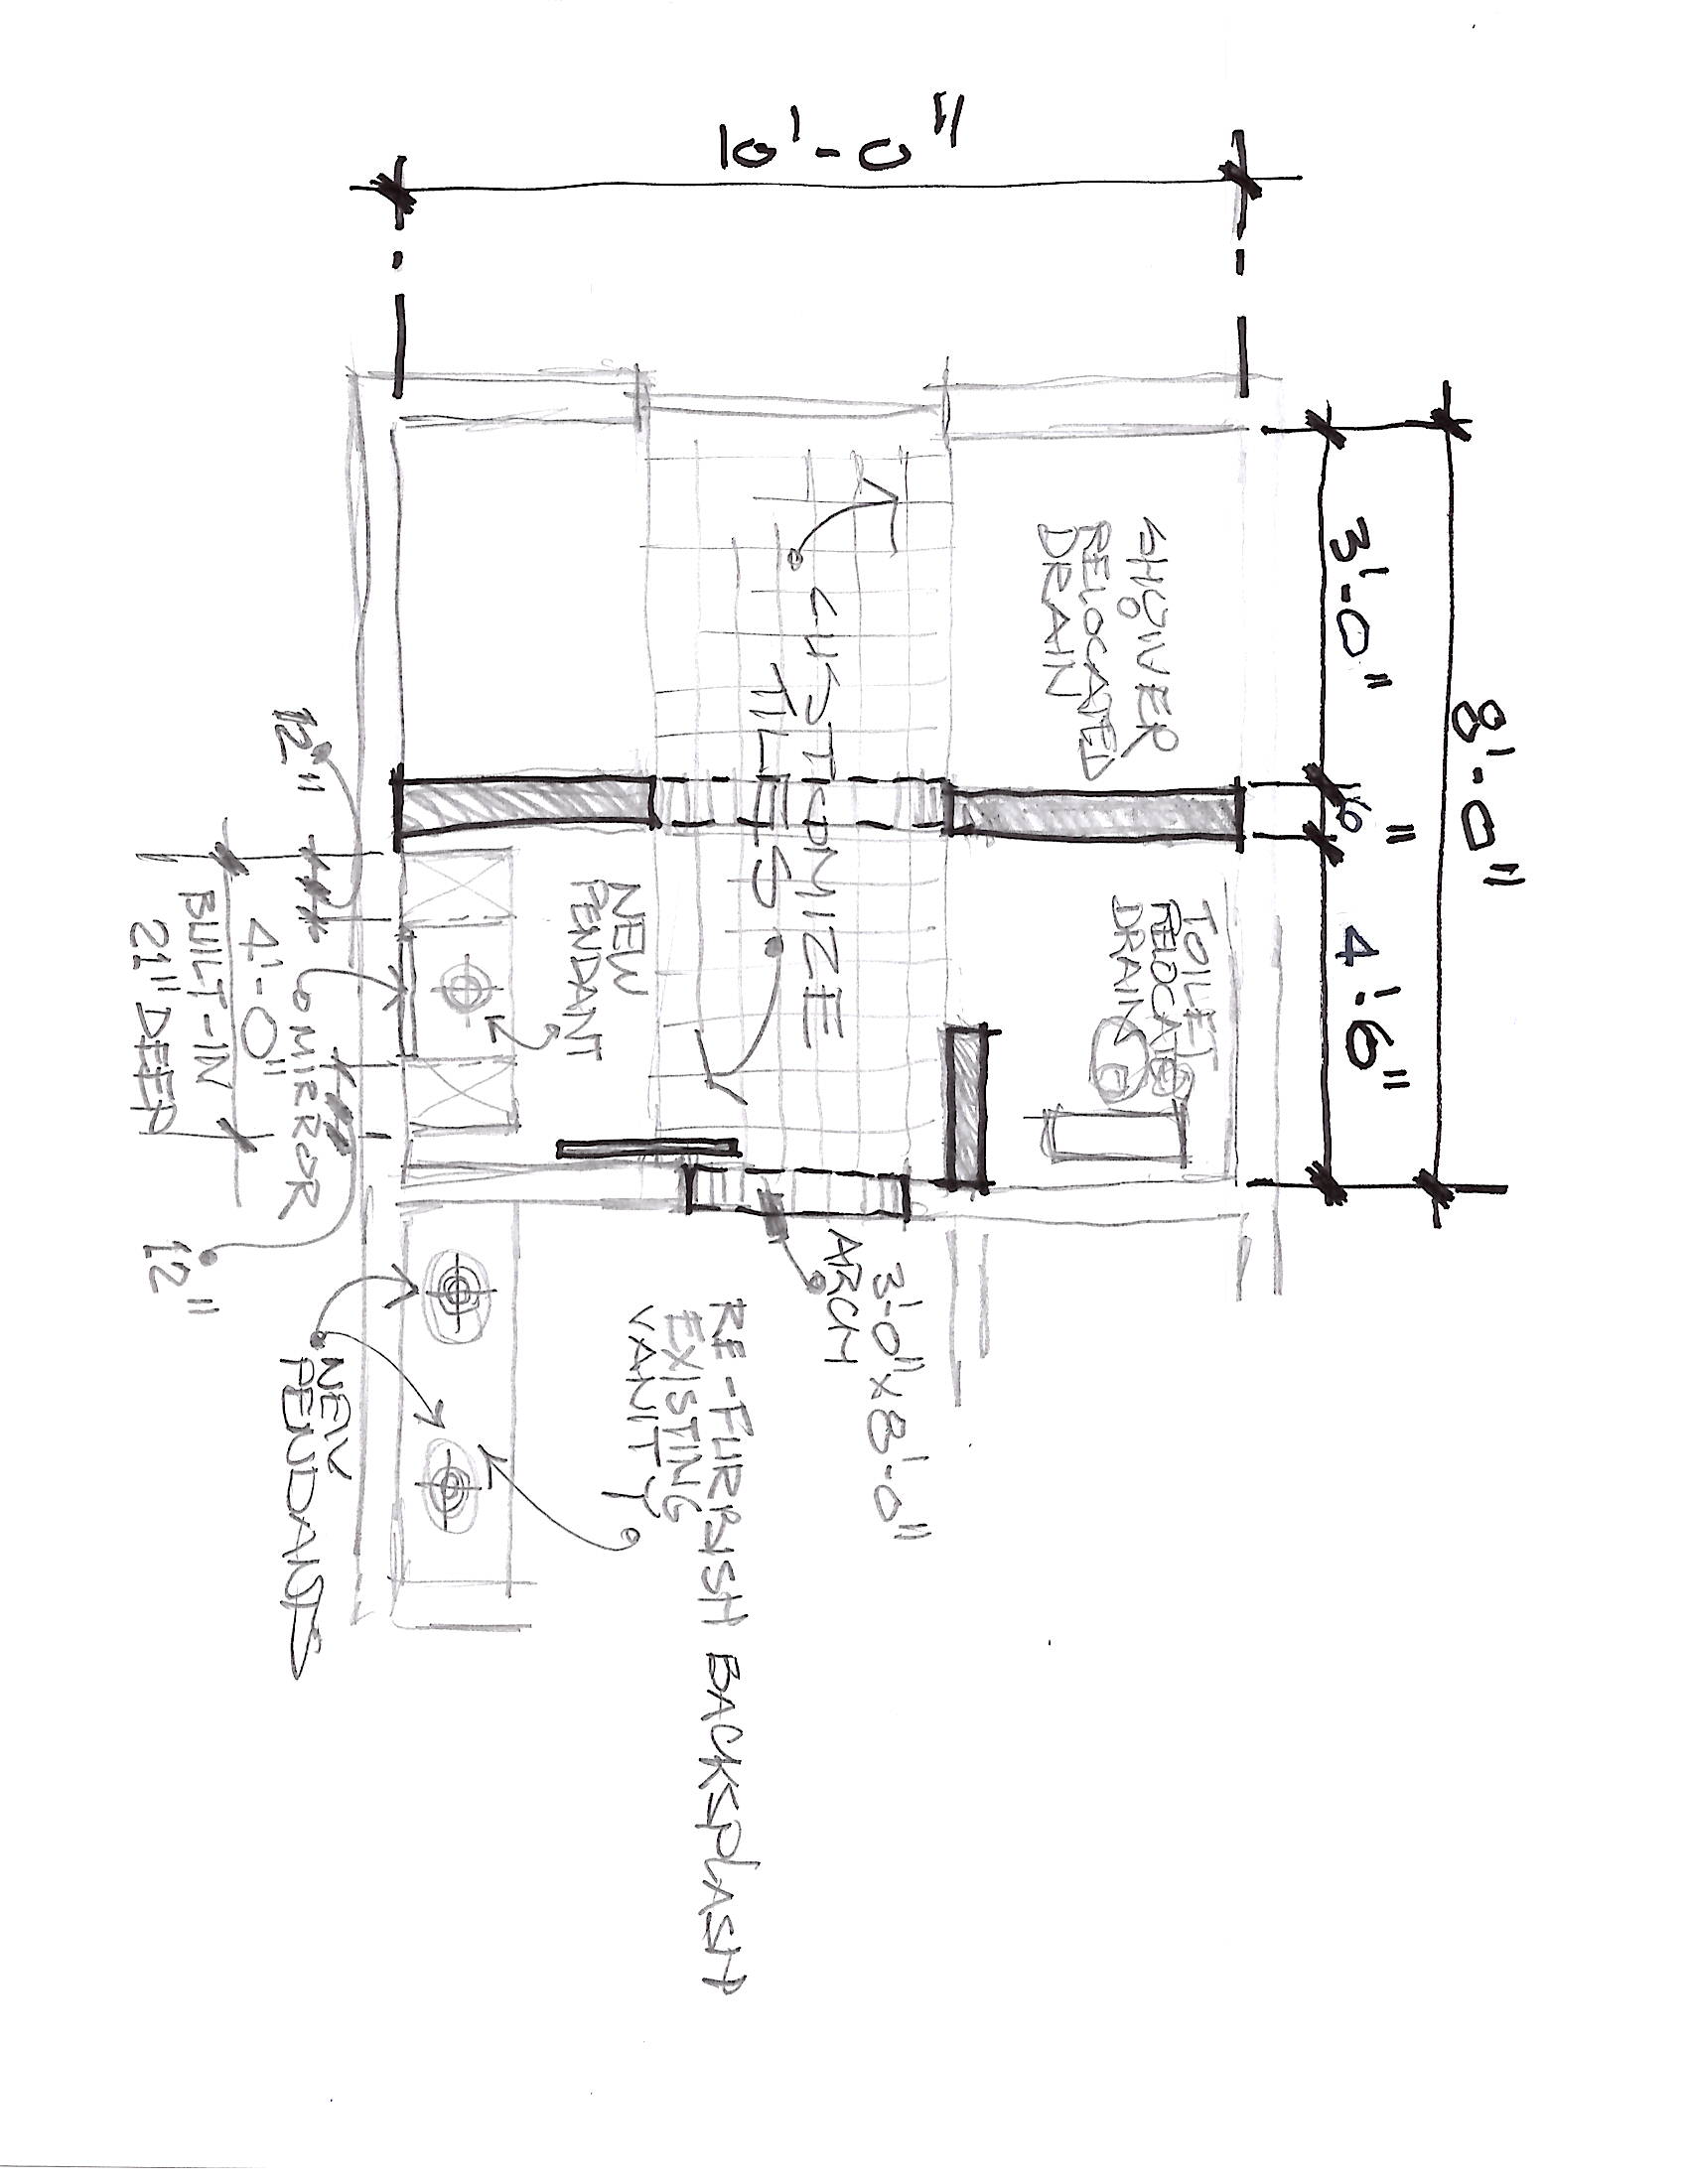 10'-0"
8'-0"
3'-0"
6"
4'-6"
SHOWER
RELOCATED
DRAIN
TOILET
RELOCATED
DRAIN
CUSTOMIZE
TILES
NEW
PENDANT
12"
MIRROR
4'-0"
BUILT-IN
21" DEEP
12"
3'-0" x 8'-0"
ARCH
RE-FURBISH BACKSPLASH
EXISTING
VANITY
NEW
PENDANTS